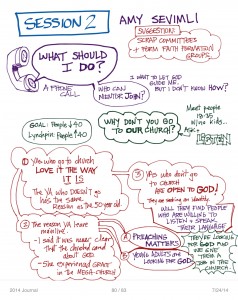 SESSION 2
AMY SEVIMLI
SUGGESTION:
SCRAP COMMITTEES
+ FORM FAITH FORMATION
GROUPS.
WHAT SHOULD
I DO?
A PHONE
CALL
WHO CAN
MENTOR JOHN?
I WANT TO LET GOD
GUIDE ME,
BUT I DON'T KNOW HOW?
GOAL: People ↓40
WHY DON'T YOU
GO TO OUR CHURCH?
Meet people
18-35
w/no kids...
ASK
LISTEN
① YAs who go to church
LOVE IT THE WAY
IT IS
The YA WHO DOESN'T GO
has the Same
Reason as the 50 year old
② The reason YA have
maintine.
- I said it was never clear
that the church cared
about GOD
She experienced GRANT in
the MEGA-CHURCH
③ YAs who don't go
to CHURCH
ARE OPEN TO GOD!
They are seeking an identity.
WILL THEY FIND PEOPLE
WHO ARE WILLING TO
LISTEN + SPEAK
THEIR LANGUAGE
④ PREACHING
MATTERS
⑤ YOUNG ADULTS are
LOOKING FOR GOD
THEY'RE LOOKING
FOR GOD
THEM A
GEM IN
THE CHURCH.
2014 Journal
7/24/14